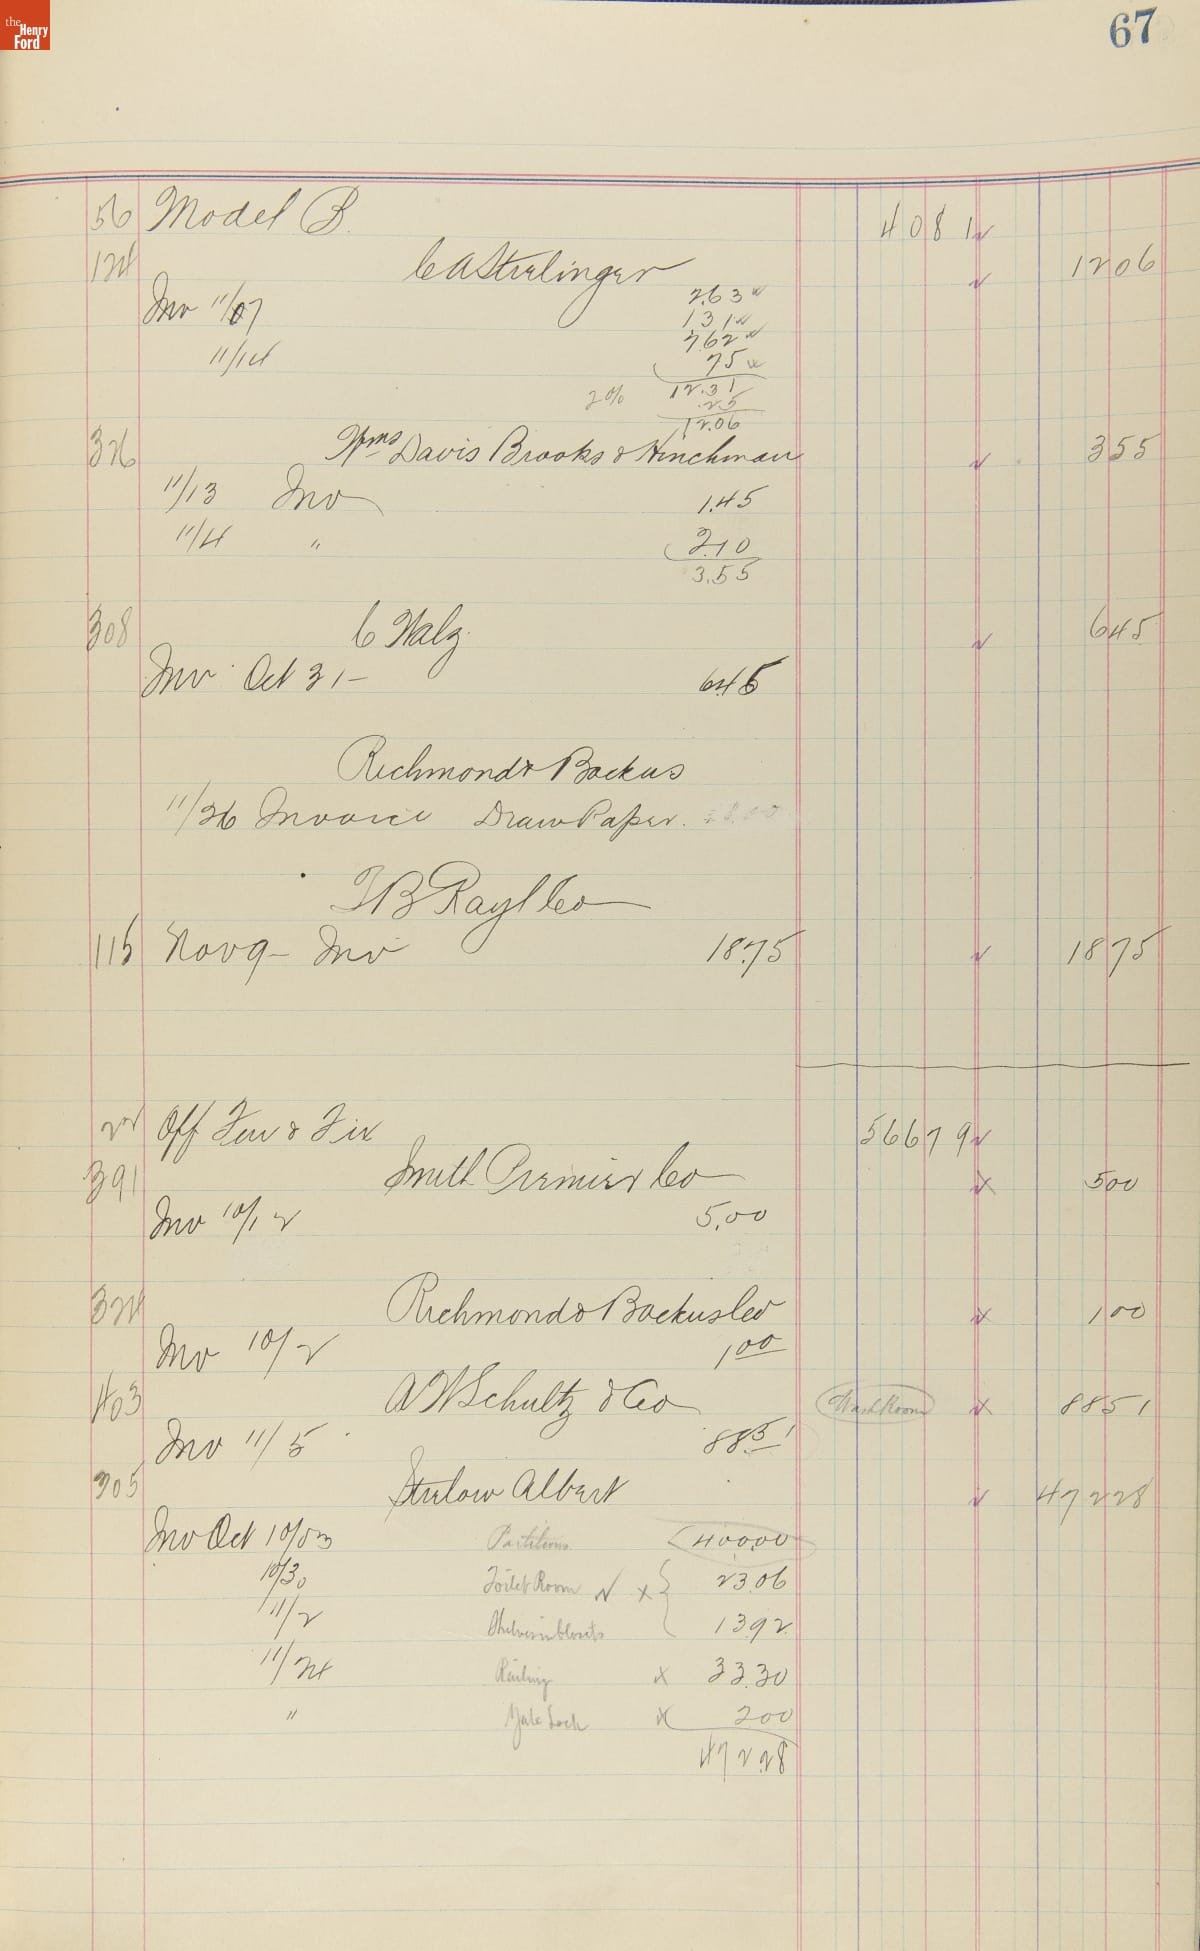 the Henry Ford
67
56 Model B. 4081
124 C A Strelinger 1206
Inv 11/07 2.63
1 31
7.62
11/14 75
2% 12.31
.25
12.06
326 Wms Davis Brooks & Hinchman 355
11/13 Inv 1.45
11/4 " 2.10
3.55
308 C Walz 645
Inv Oct 31 - 6.45
Richmond & Backus
11/26 Invoice Draw Paper.
T B Rayl Co
115 Nov 9 - Inv 18.75 1875
22 Off Fur & Fix 56679
391 Smith Premier Co 500
Inv 10/12 5.00
324 Richmond & Backus Co 100
Inv 10/2 1 00
403 A W Schultz & Co Wash Room 8851
Inv 11/5 88.51
305 Strelow Albert 47228
Inv Oct 10/03 Partitions 400.00
10/30 Toilet Room x 23.06
11/2 Shelves in closets 13.92
11/24 Railing x 33.30
" Yale Lock x 200
472.28